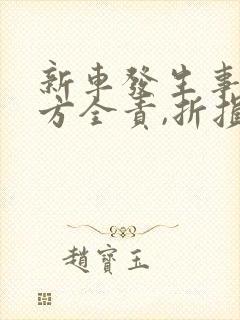 新車發生事
方全責,折損
趙寶玉